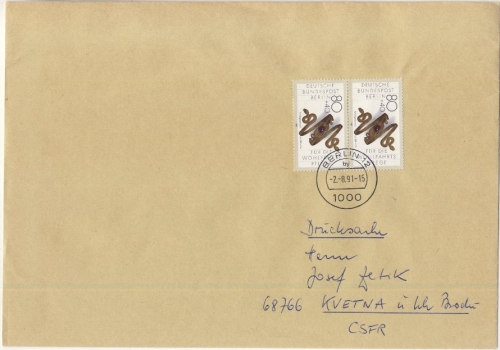 DEUTSCHE
BUNDESPOST
BERLIN
80
FÜR DIE
WOHL
DEUTSCHE
BUNDESPOST
BERLIN
80
FÜR DIE
BERLIN 12
-2.-8.91-15
1000
Drucksache
Herrn
Josef Jetik
68766 KVETNA u Uh. Brodu
CSFR